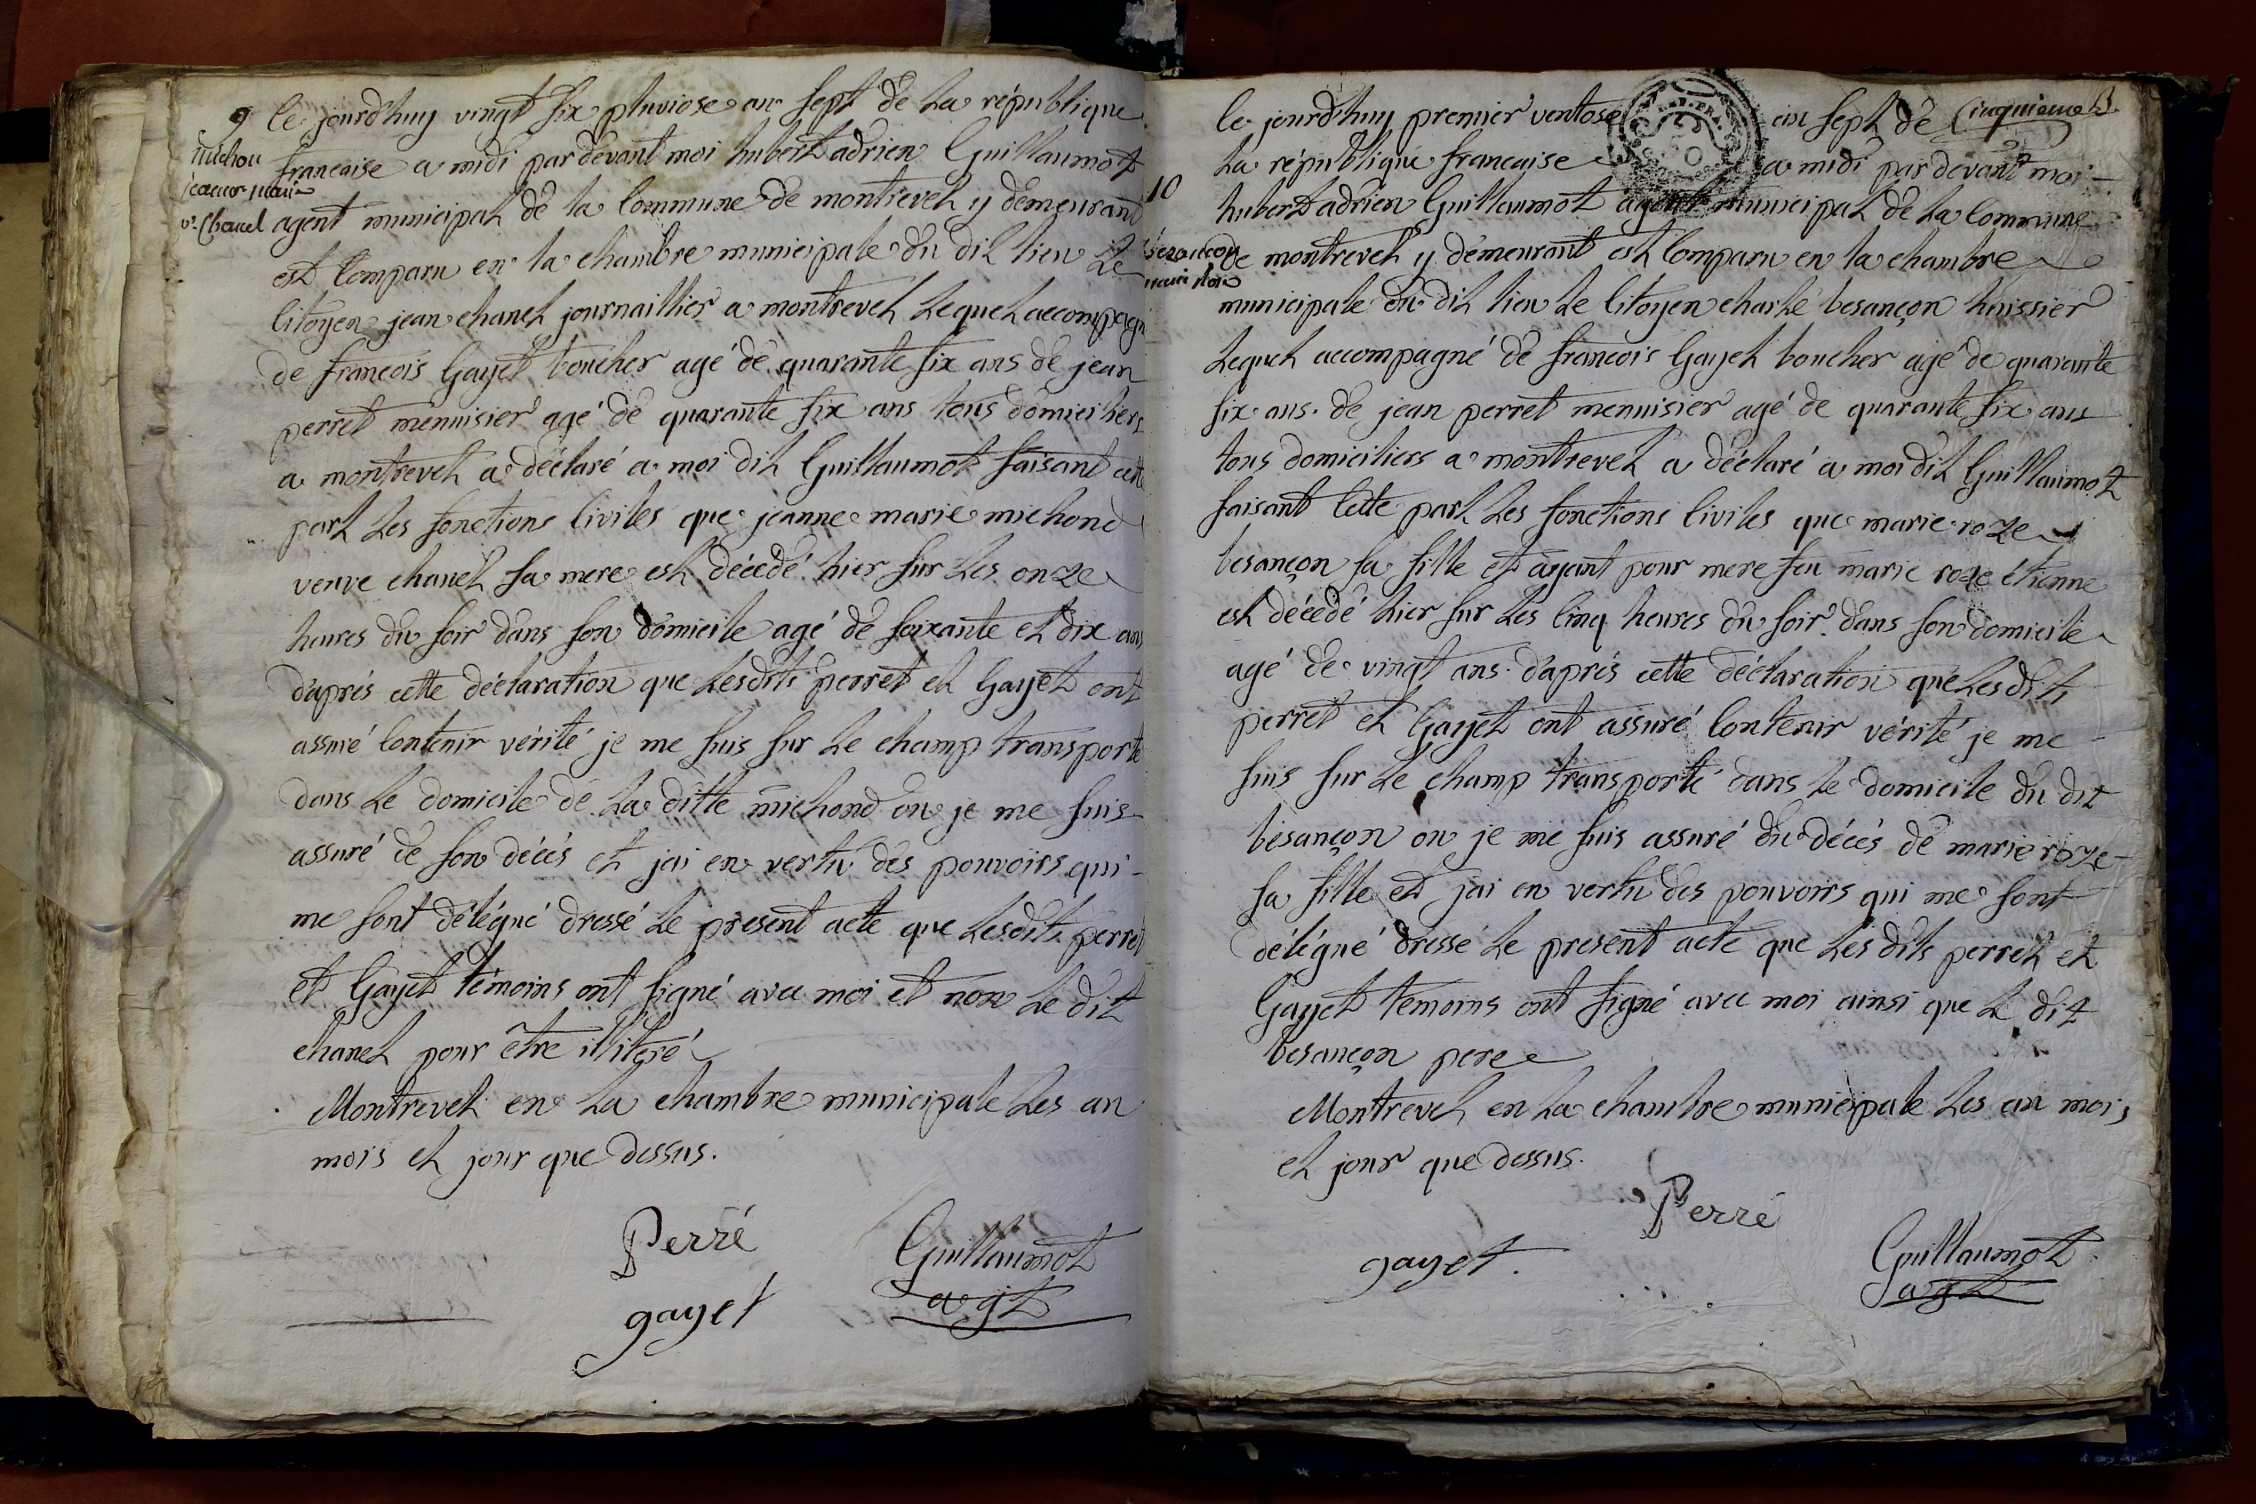 9
michon
jeanne marie
ve. Chanel
le jourd'huy vingt six pluviose an sept de la république
francaise a midi pardevant moi hubert adrien Guillaumot
agent municipal de la Commune de montrevel y demeurant
est Comparu en la chambre municipale du dit lieu le
Citoyen jean chanel journaillier a montrevel lequel accompagné
de francois Gayet boucher agé de quarante six ans de jean
perret menuisier agé de quarante six ans tous domiciliers
a montrevel a déclaré a moi dit Guillaumot faisant cette
part les fonctions Civiles que jeanne marie michond
veuve chanel sa mere est décedé hier sur les onze
heures du soir dans son domicile agé de soixante et dix ans
d'aprés cette déclaration que lesdits perret et Gayet ont
assuré Contenir vérité je me suis sur le champ transporté
dans le domicile de la ditte michond ou je me suis
assuré de son décés et jai en vertu des pouvoirs qui
me sont délégué dressé le present acte que lesdits perret
et Gayet témoins ont signé avec moi et non le dit
chanel pour être illitéré
Montrevel en la chambre municipale les an
mois et jour que dessus.
Perré
Guillaumot
agt
gayet
Cinquieme
10
Besancon
marie Rose
le jourd'huy premier ventose an sept de
la république francaise a midi pardevant moi
hubert adrien Guillaumot agent municipal de la Commune
de montrevel y demeurant est Comparu en la chambre
municipale du dit lieu le Citoyen charle besançon huissier
lequel accompagné de francois Gayet boucher agé de quarante
six ans. de jean perret menuisier agé de quarante six ans
tous domiciliers a montrevel a déclaré a moi dit Guillaumot
faisant Cette part les fonctions Civiles que marie roze
besançon sa fille et ayant pour mere feu marie roze étienne
est décedé hier sur les Cinq heures du soir dans son domicile
agé de vingt ans. d'aprés cette déclaration que lesdits
perret et Gayet ont assuré Contenir vérité je me
suis sur le champ transporté dans le domicile du dit
besançon ou je me suis assuré du décés de marie roze
sa fille et jai en vertu des pouvoirs qui me sont
délégué dressé le present acte que les dits perret et
Gayet temoins ont signé avec moi ainsi que le dit
besançon pere
Montrevel en la chambre municipale les an mois
et jour que dessus.
Perré
gayet.
Guillaumot
agt